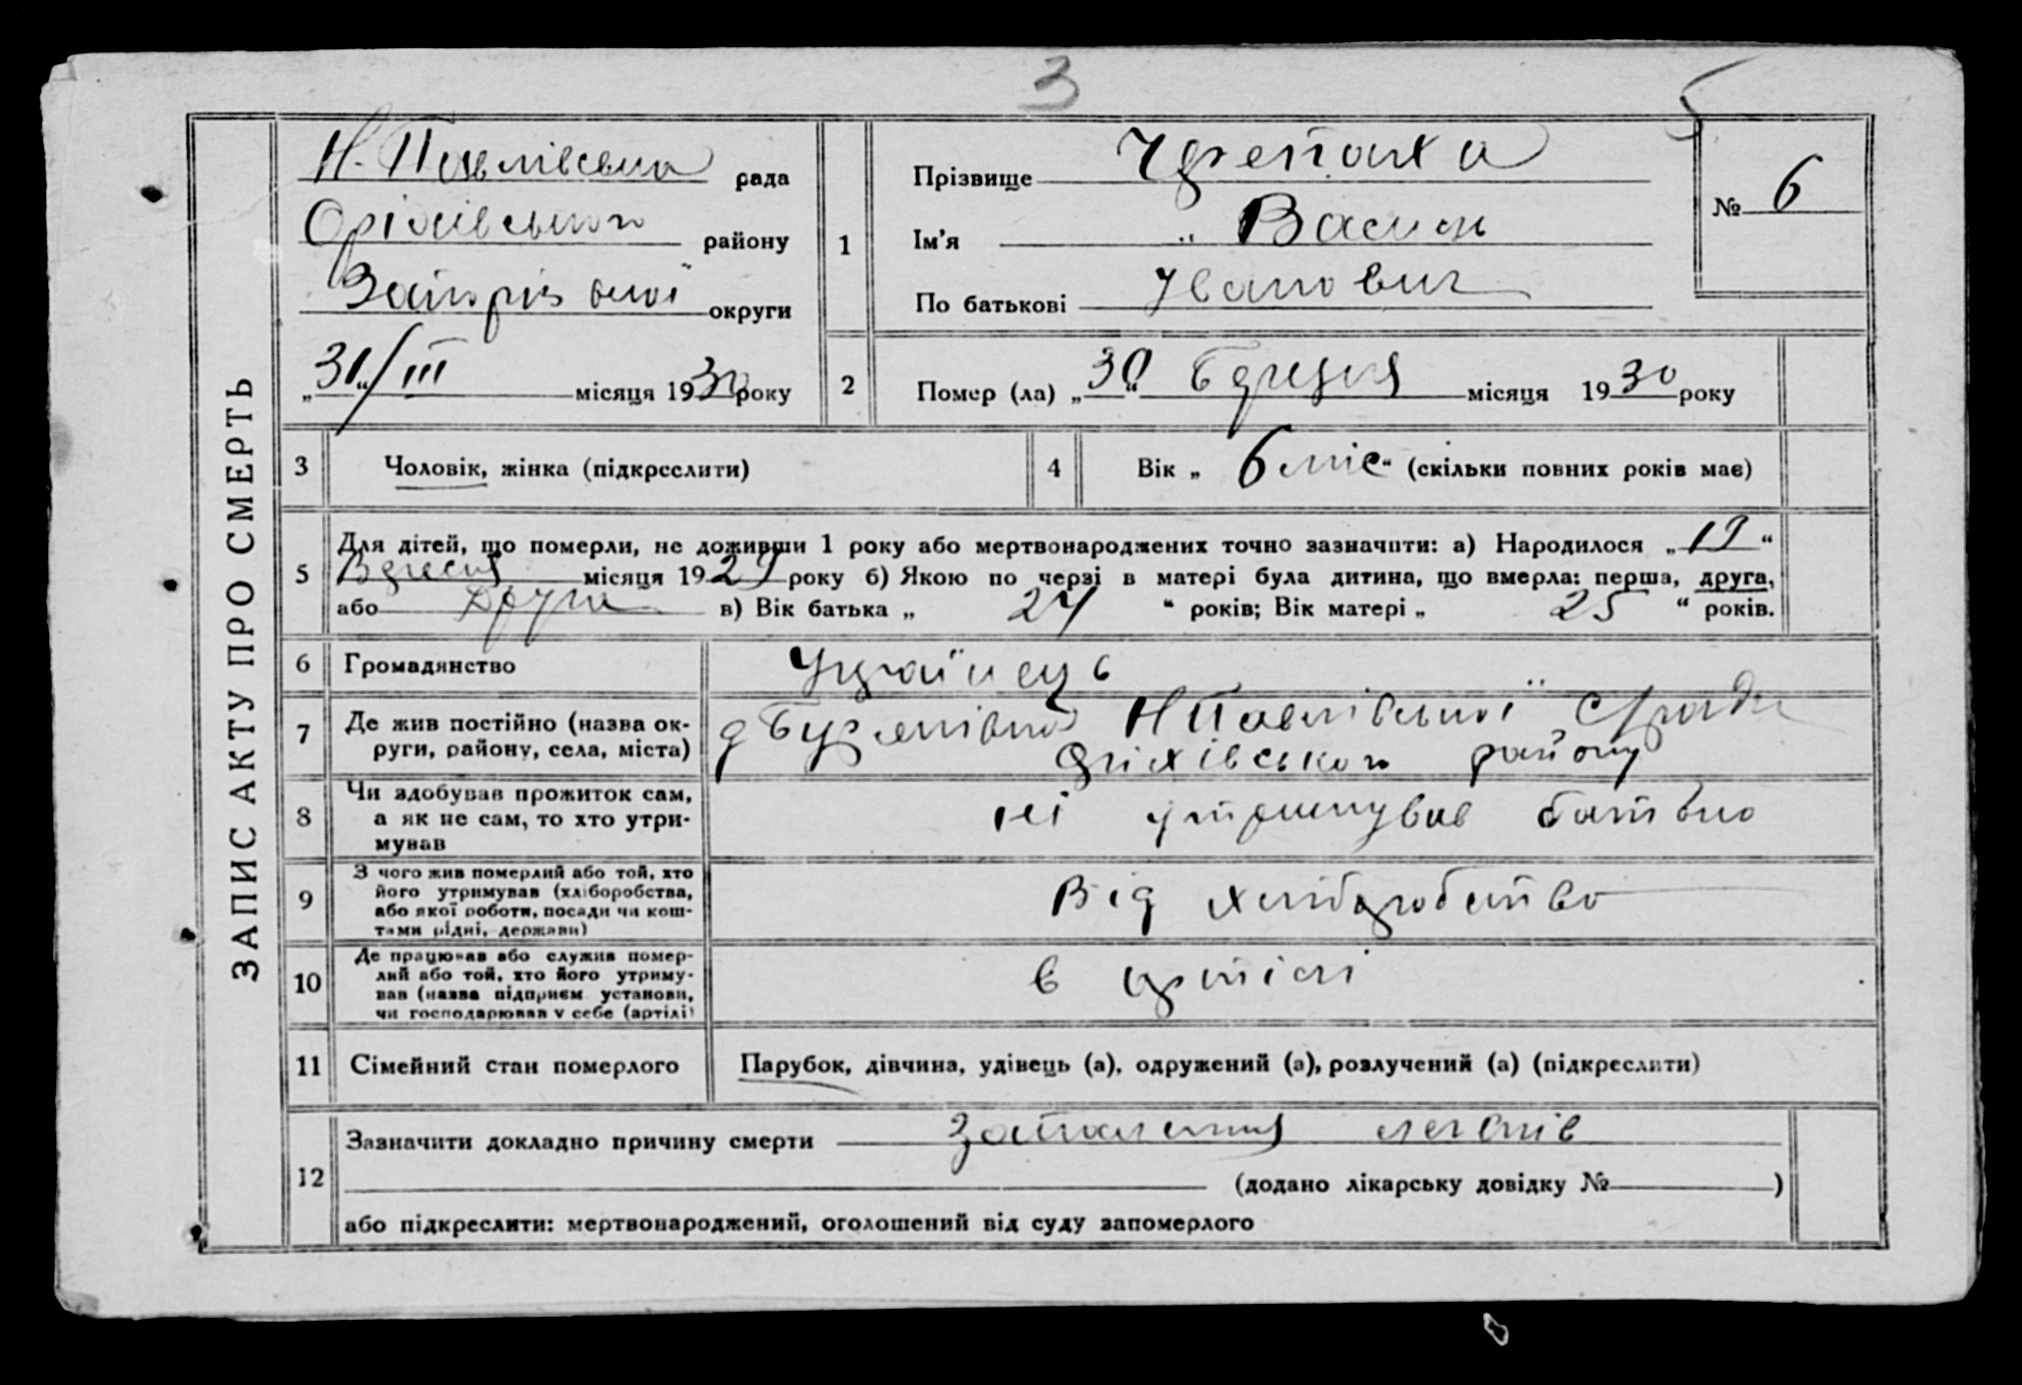 3
ЗАПИС АКТУ ПРО СМЕРТЬ
Н-Павлівська рада
Оріхівського району
Запорізької округи
„31“/III місяця 1930 року
1
Прізвище Черепаха
Ім'я Василь
По батькові Іванович
№ 6
2
Помер (ла) „30“ березня місяця 1930 року
3 Чоловік, жінка (підкреслити)
4 Вік „ 6 міс “ (скільки повних років має)
5
Для дітей, що померли, не доживши 1 року або мертвонароджених точно зазначити: а) Народилося „19“
Вересня місяця 1929 року б) Якою по черзі в матері була дитина, що вмерла: перша, друга,
або друга в) Вік батька „ 24 “ років; Вік матері „ 25 “ років.
6 Громадянство Українець
7 Де жив постійно (назва ок-
руги, району, села, міста)
Н Павлівської с/ради
Оріхівського району
8 Чи здобував прожиток сам,
а як не сам, то хто утри-
мував
ні утримував батько
9 З чого жив померлий або той, хто
його утримував (хліборобства,
або якої роботи, посади чи кош-
тами рідні, держави)
Від хліборобства
10 Де працював або служив помер-
лий або той, хто його утриму-
вав (назва підприєм установи,
чи господарював у себе (артілі)
в артілі
11 Сімейний стан померлого Парубок, дівчина, удівець (а), одружений (а), розлучений (а) (підкреслити)
12
Зазначити докладно причину смерти запалення легенів
(додано лікарську довідку № )
або підкреслити: мертвонароджений, оголошений від суду запомерлого